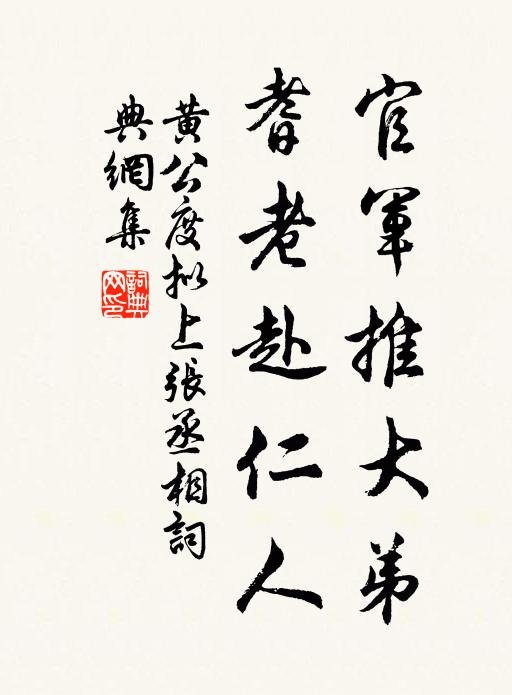 官軍推大弟
耆老赴仁人
黄公度拟上張丞相詞
典網集
詞典網印